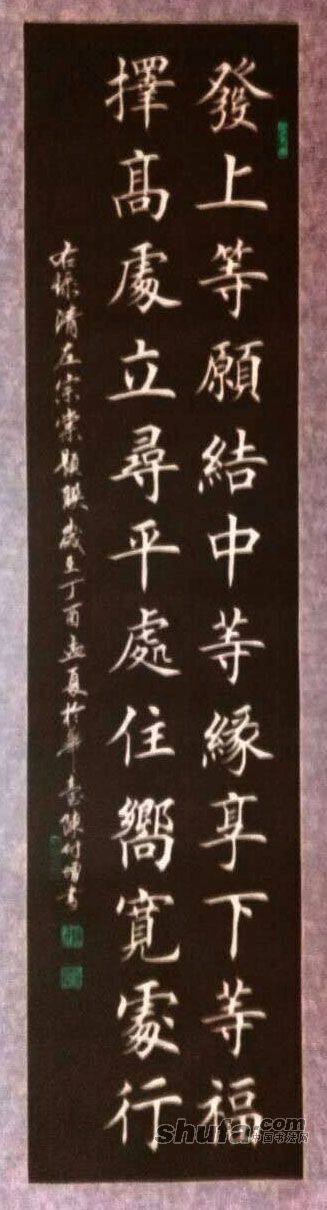 發上等願結中等緣享下等福
擇高處立尋平處住嚮寬處行
右錄清左宗棠題聯歲在丁酉孟夏於 陳 書
shufa.com
中国书法网